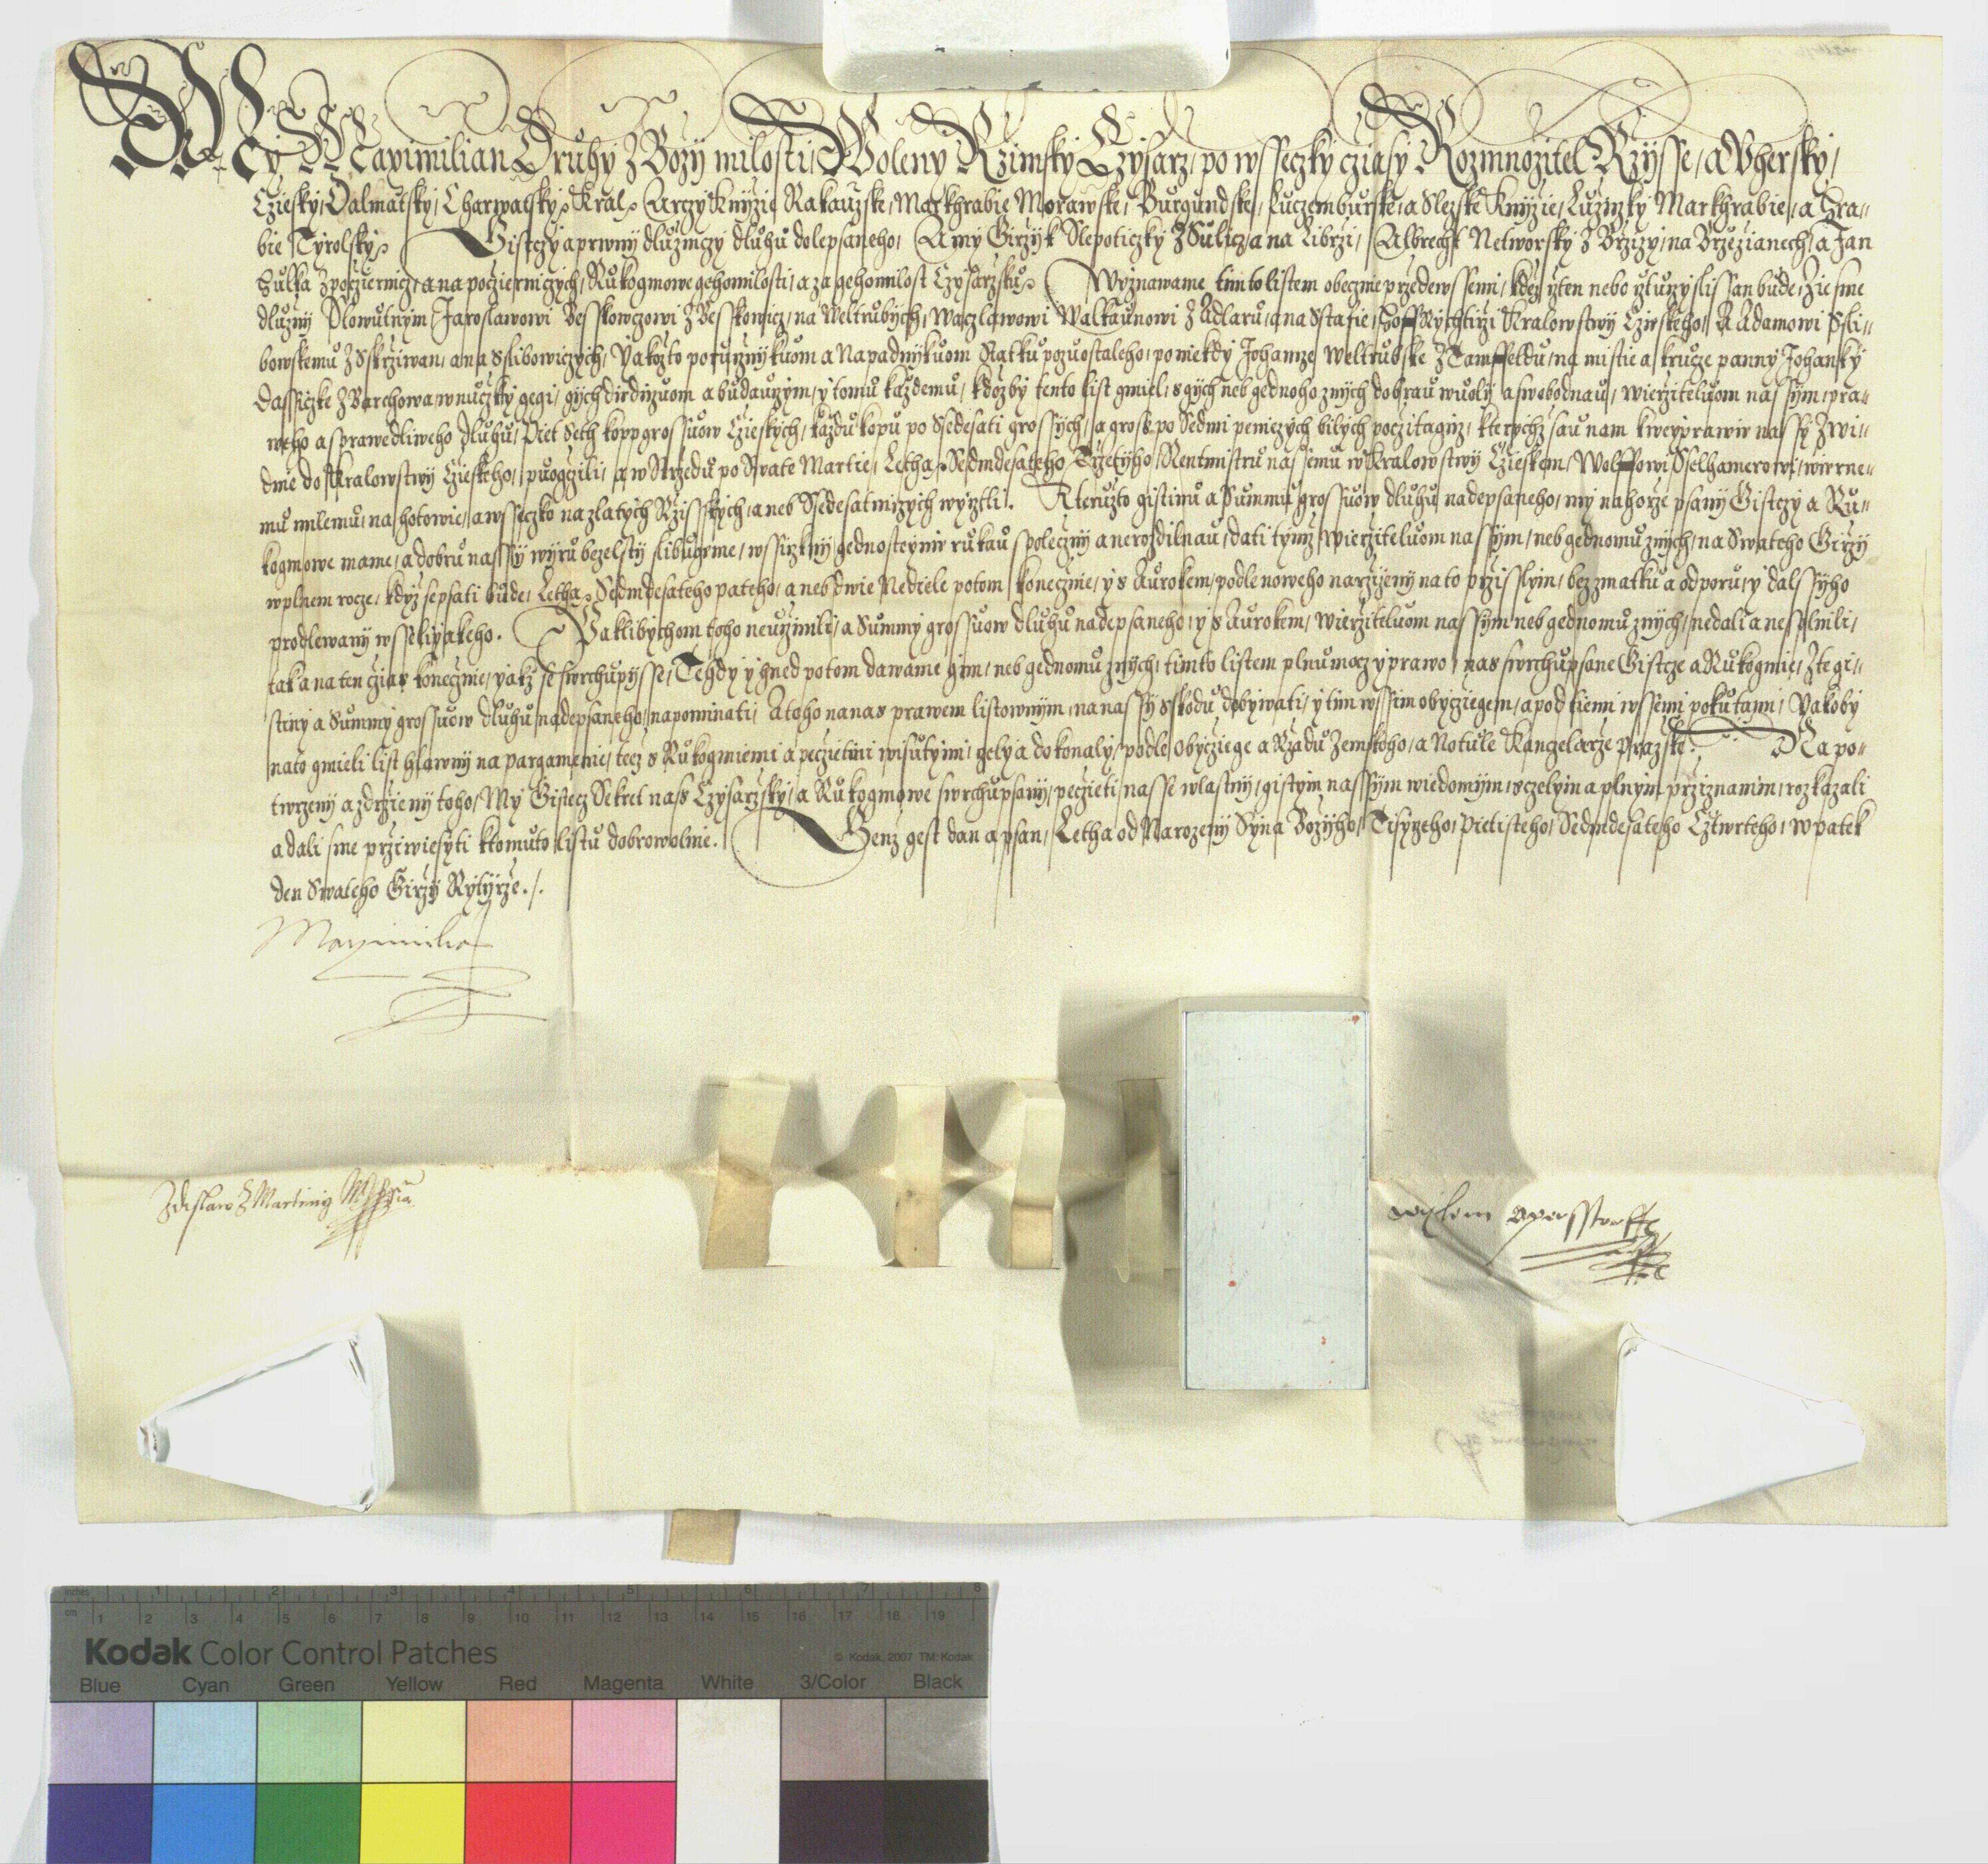 My Maximilian Druhy Z Bozy milosti, Woleny Rzimsky Czysarz, po wsseczky cziasy Rozmnozitel Rzysse, a Vhersky,
Cziesky, Dalmatsky, Charwatsky Kral, Arczy Knyzie Rakauzske, Markhrabie Morawske, Burgundske, Luczemburske, a Slezske Knyzie, Luziczky Markhrabie, a Hra-
bie Tyrolsky Gistczy a prwny dluznyczy dluhu dolepsaneho, A my Girzyk Slepoticzky Z Sulicz, a na Librzi, Albrecht Networsky z Brzizy, na Brzezianech, a Jan
Hulka z pocziernicz, a na pocziernyczych, Rukogmowe gehomilosti, a za gehomilost Czysarzsku, Wyznawame timto listem obecznie przedewssemi, kdez cžten nebo cžtuczy slissan bude, Zie sme
dluzny Slowutnym Jaroslawowi Besskowczowi Z Besskowicz, na Weltrubych, Waczlawowi Walkaunowi Z Adlaru, a na Stasie, Hoff Rychtirzi Kralowstwy Czieskeho, A Adamowi Sli-
bowskemu Z Skrziwan, a na Slibowiczych, Yakozto porucznykuom a Napadnykuom Statku pozuostaleho, po niekdy Johance Weltrubske Z Tamffeldu, na mistie a kruche panny Johanky
Dassiczke Z Barchowa, wnuczky gegi, gych dirdiczuom a buduczym, y tomu kazdemu, kdozby tento list gmiel, s gych neb gednoho znych dobrau wuoly a swobodnau, wierzitelůom nassym, pra-
weho a sprawedliweho dluhu, Piet Seth kopp grossuow Czieskych, kazdu kopu po Ssedesati grossych, a gross po Sedmi peniezych bilych pocžitagicz, kterychz sau nam kweyprawie nassy Z Wi-
dnie do Kralowstwy Czieskeho, puogczili, a w Strzedu po Swate Martie, Letha Sedmdesateho Trzetyho, Rentmistru nassemu w Kralowstwy Czieskem, Wolffowi Sselhamerowi, wierne-
mu milemu, na hotowie, a wsseczko na zlatych Rzisskych, a neb Ssedesatniczych wycztli. Kteruzto gistinu a Summu grossuow dluhu nadepsaneho, my nahorze psany Gistczy a Ru-
kogmowe mame, a dobru nassy wyru bezelsty slibugeme, wssiczkny gednosteynie rukau spoleczny a nerozdilnau, dati tymz wierzitelůom nassym, neb gednomu znych, na Swateho Girzy
w plnem rocze, kdyz se psati bude, Letha Sedmdesateho pateho, a neb dwie Nediele potom konecznie, y s Aurokem, podle noweho narzyzeny na to przisslym, bez zmatku a odporu, y dalssyho
prodlewany wsselikyakeho. Paklibychom toho neuczinili, a Summy grossuow dluhu nadepsaneho, y s Aurokem, wierzitelůom nassym neb gednomu znych, nedali a nesplnili,
tak a na ten czias konecznie, yakz se swrchu pysse, Tehdy y hned potom dawame gim, neb gednomu znych, timto listem plnu mocz y prawo, nas swrchupsane Gistcze a Rukogmie, Z te gi-
stiny a Summy grossuow dluhu nadepsaneho, napominati, A toho na nas prawem listownym, na nassy sskodu dobywati, y tim wssim obycziegem, a pod tiemi wssemi pokutami, Yakoby
na to gmieli list hlawny na pargamenie, teez s Rukogmiemi a peczietmi wisutymi, gely a dokonaly, podle Obycziege a Rzadu Zemskeho, a Notule Kanczelarze Prazske. Na po-
twrzeny a zdrzieny toho, My Gistecz Sekret nass Czysarzsky, a Rukogmowe swrchupsany, peczieti nasse wlastny, gistym nassym wiedomym, s czelym a plnym przyznanim, rozkazali
a dali sme przywiesyti k tomuto listu dobrowolnie. Genz gest dan a psan, Letha od Narozeny Syna Bozyho, Tisyczeho, Pietisteho, Sedmdesateho Cztwrteho, w patek
den Swateho Girzy Rytyrze./.
Maximilian
Zdislaw Z Martinicz
Wylem Opersstorff
inches 1 2 3 4 5 6 7 8
cm 1 2 3 4 5 6 7 8 9 10 11 12 13 14 15 16 17 18 19
Kodak Color Control Patches © Kodak, 2007 TM: Kodak
Blue Cyan Green Yellow Red Magenta White 3/Color Black